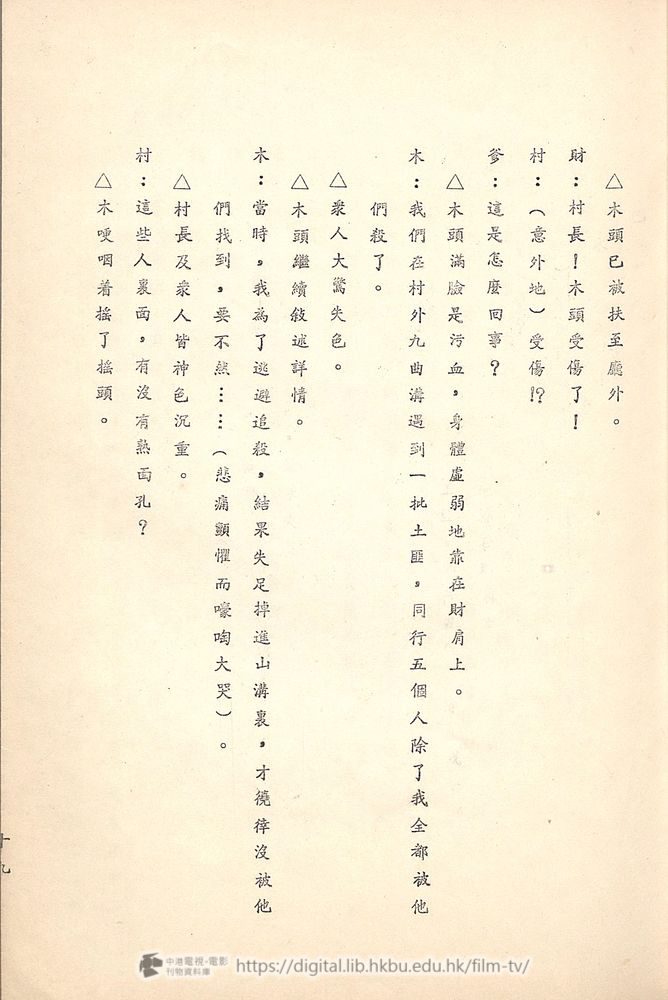 △木頭已被扶至廳外。
財：村長！木頭受傷了！
村：（意外地）受傷!?
爹：這是怎麼回事？
△木頭滿臉是污血，身體虛弱地靠在財肩上。
木：我們在村外九曲溝遇到一批土匪，同行五個人除了我全都被他
們殺了。
△衆人大驚失色。
△木頭繼續敍述詳情。
木：當時，我為了逃避追殺，結果失足掉進山溝裏，才僥倖沒被他
們找到，要不然……（悲痛顫懼而嚎啕大哭）。
△村長及衆人皆神色沉重。
村：這些人裏面，有沒有熟面孔？
△木哽咽着搖了搖頭。
十九
中港電視·電影
刊物資料庫
https://digital.lib.hkbu.edu.hk/film-tv/